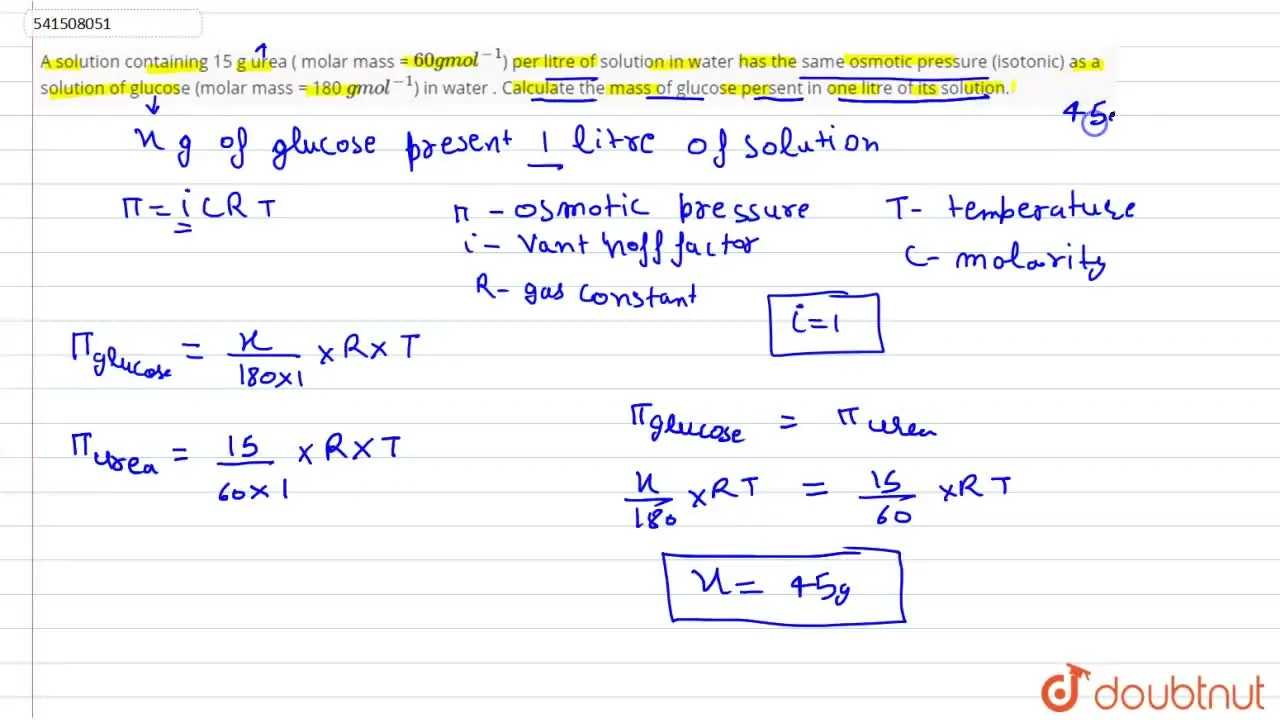 541508051
A solution containing 15 g urea ( molar mass = 60gmol⁻¹) per litre of solution in water has the same osmotic pressure (isotonic) as a
solution of glucose (molar mass = 180 gmol⁻¹) in water . Calculate the mass of glucose persent in one litre of its solution.
45
x g of glucose present 1 litre of solution
π = i C R T
π - osmotic pressure
T - temperature
i - Vant hoff factor
C - molarity
R - gas constant
i = 1
π glucose = x / 180×1 × R × T
π urea = 15 / 60×1 × R × T
π glucose = π urea
x / 180 × RT = 15 / 60 × RT
x = 45g
doubtnut